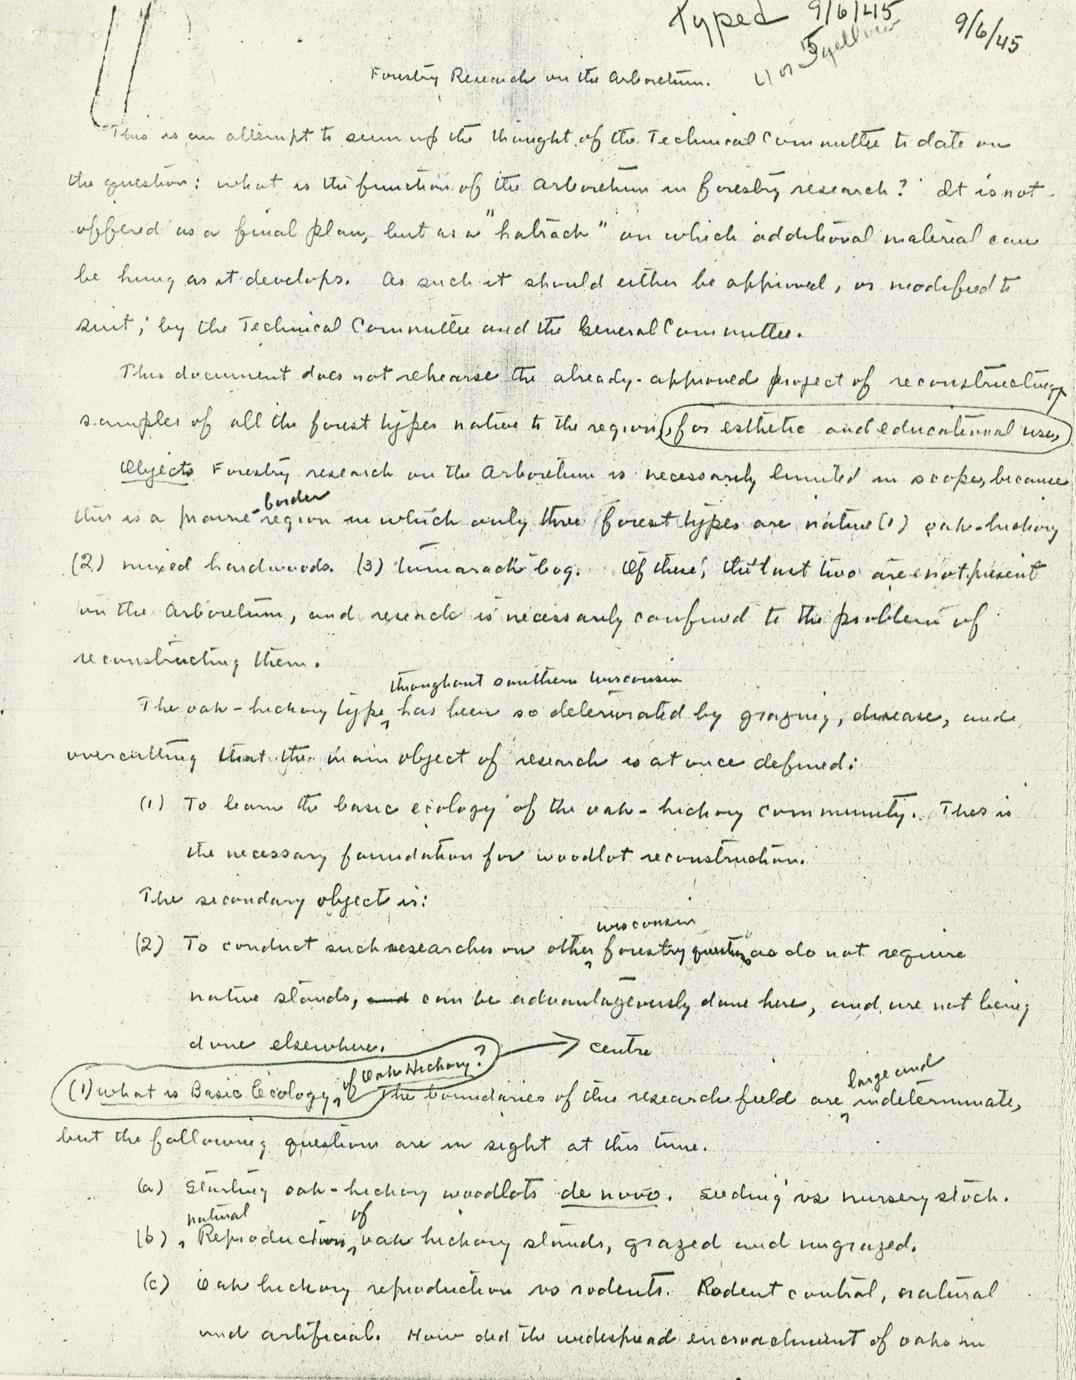 Typed 9/6/45
9/6/45
on 5 yellow
Forestry Research on the Arboretum.
This is an attempt to sum up the thought of the Technical Committee to date on
the question: what is the function of the Arboretum in forestry research? It is not
offered as a final plan, but as a "hatrack" on which additional material can
be hung as it develops. As such it should either be approved, or modified to
suit, by the Technical Committee and the General Committee.
This document does not rehearse the already-approved project of reconstructing
samples of all the forest types native to the region, for esthetic and educational uses.
Objects Forestry research on the Arboretum is necessarily limited in scope, because
border
this is a prairie-region in which only three forest types are native (1) oak-hickory
(2) mixed hardwoods. (3) tamarack bog. Of these, the last two are not present
on the Arboretum, and research is necessarily confined to the problem of
reconstructing them.
throughout southern Wisconsin
The oak-hickory type, has been so deteriorated by grazing, disease, and
overcutting that the main object of research is at once defined:
(1) To learn the basic ecology of the oak-hickory community. This is
the necessary foundation for woodlot reconstruction.
The secondary object is:
Wisconsin
(2) To conduct such researches on other forestry questions as do not require
native stands, and can be advantageously done here, and are not being
done elsewhere.
centre
of Oak Hickory?
large and
(1) What is Basic Ecology, The boundaries of this research field are indeterminate,
but the following questions are in sight at this time.
(a) Starting oak-hickory woodlots de novo. Seeding vs nursery stock.
natural of
(b) Reproduction oak hickory stands, grazed and ungrazed.
(c) Oak hickory reproduction vs rodents. Rodent control, natural
and artificial. How did the widespread encroachment of oaks in